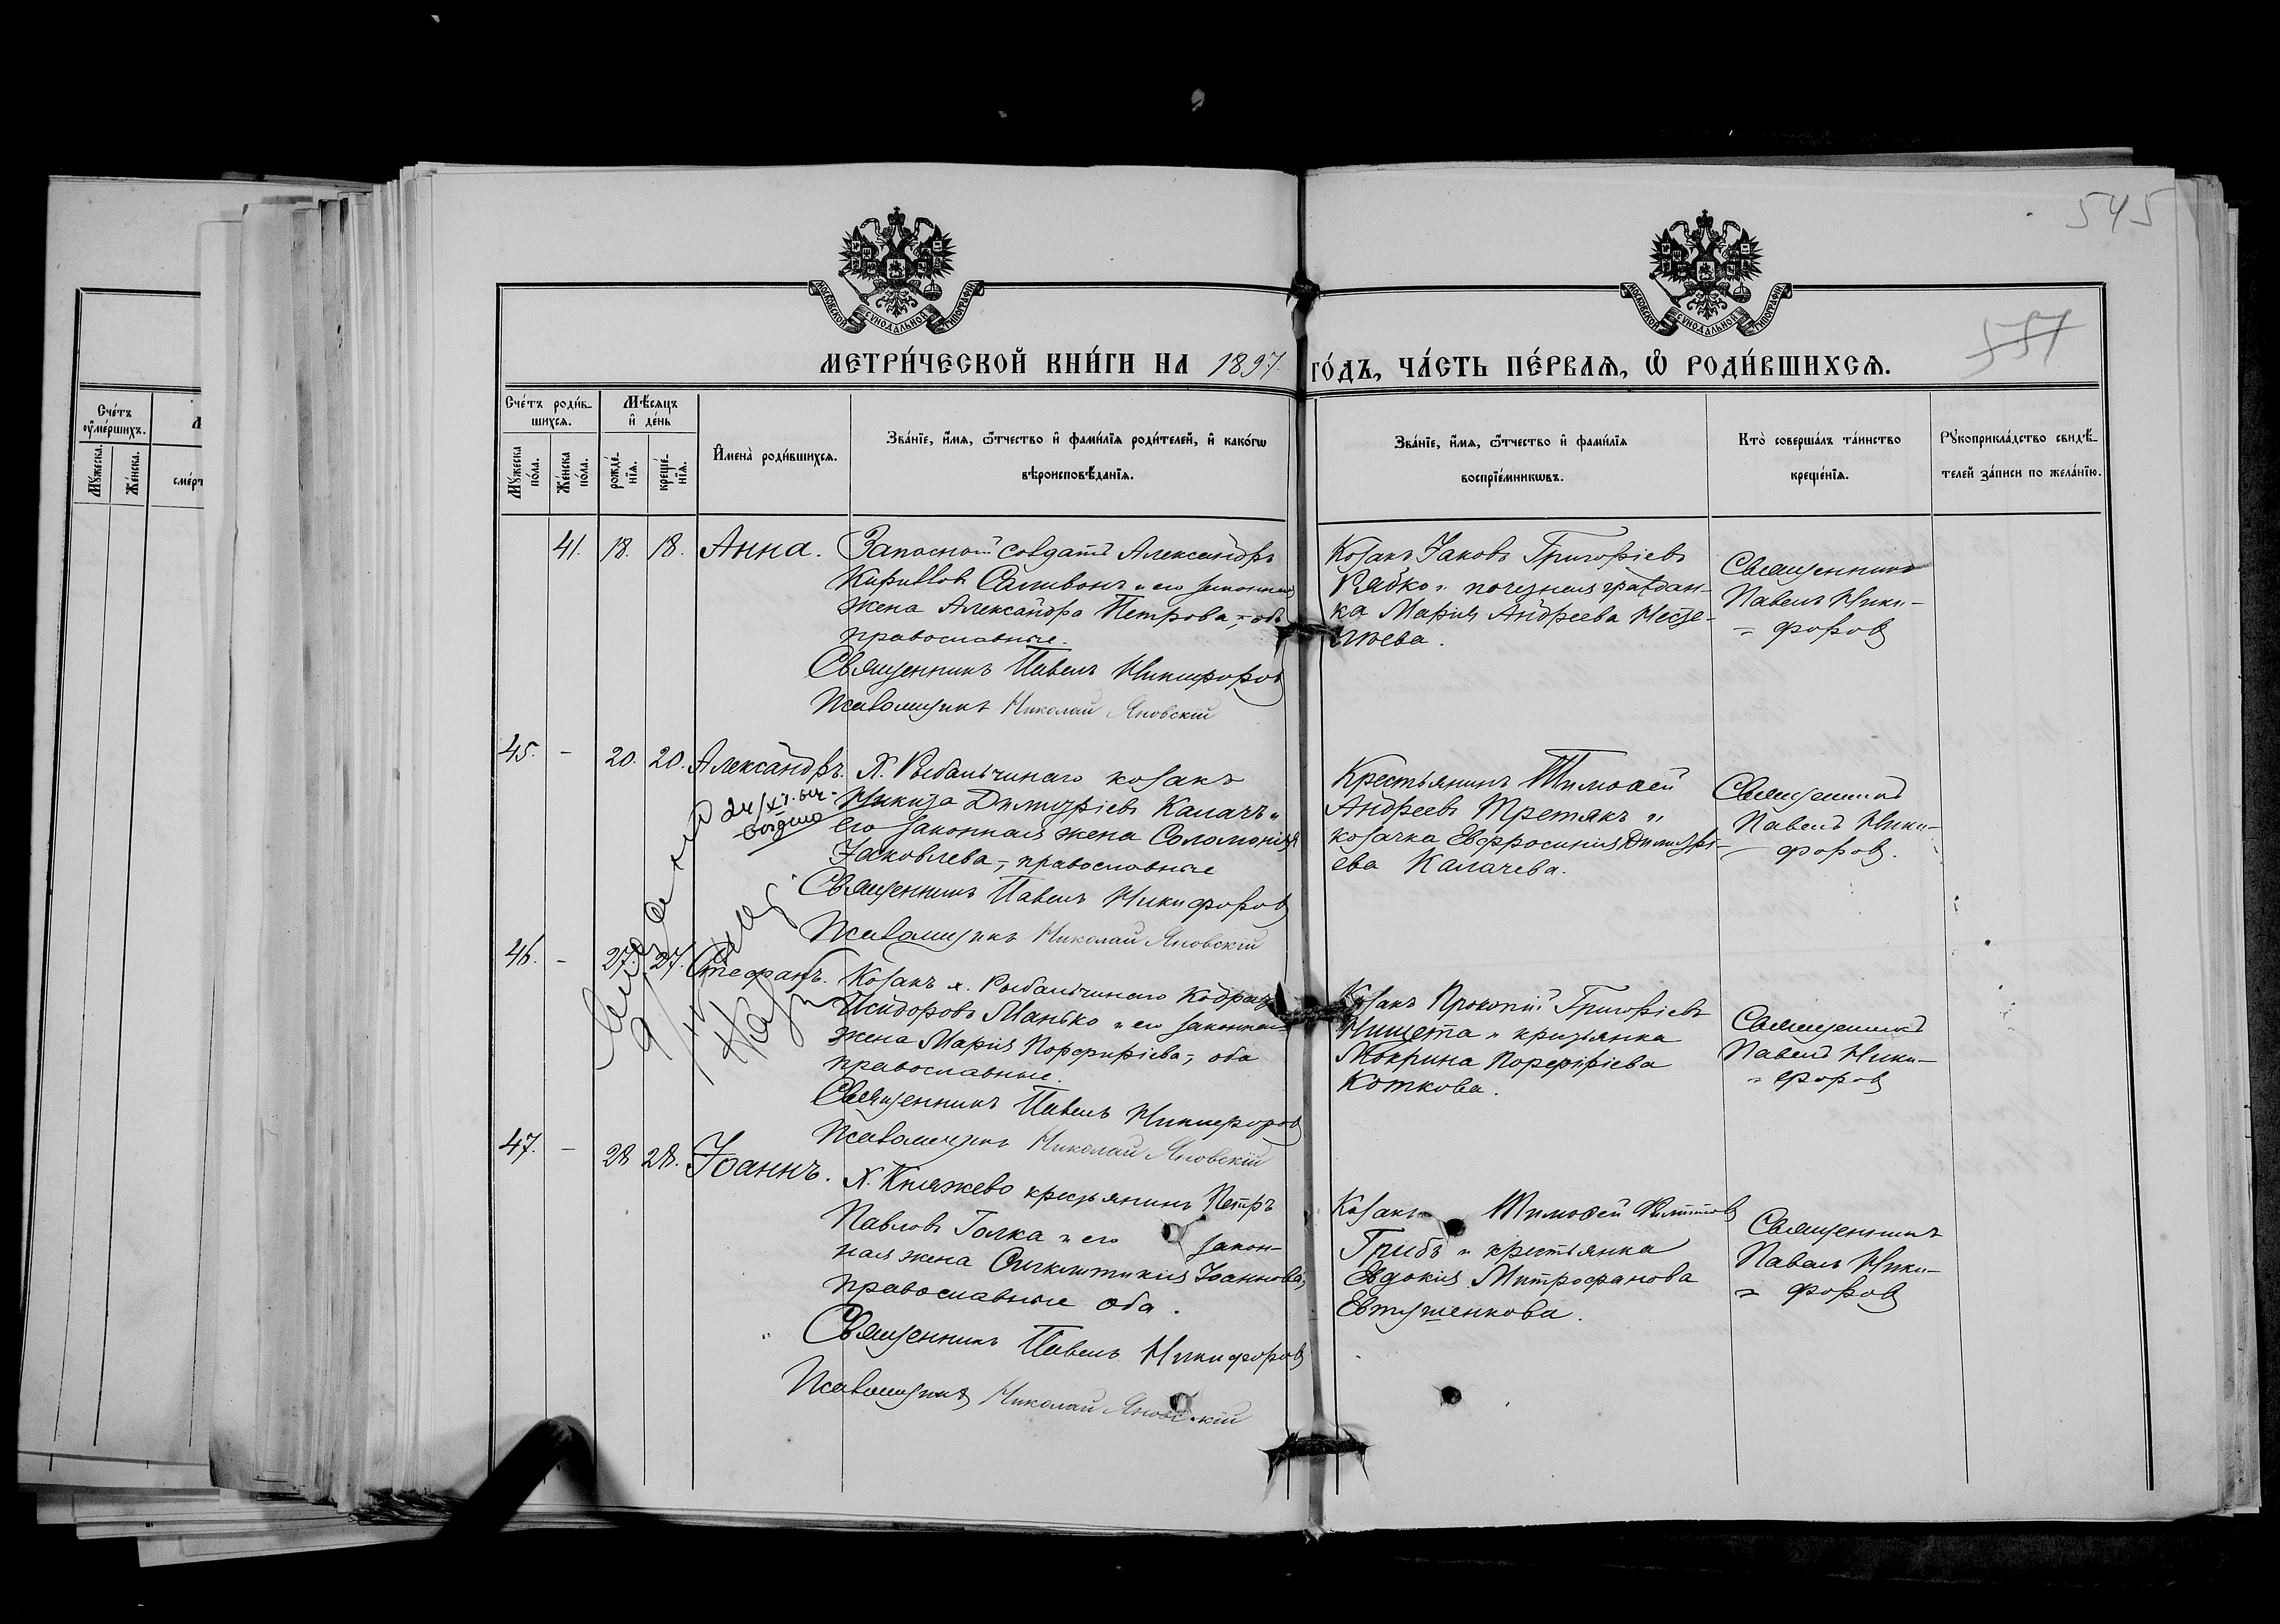 545
557
МОСКОВСКОЙ СѴНОДАЛЬНОЙ ТИПОГРАФІИ
МОСКОВСКОЙ СѴНОДАЛЬНОЙ ТИПОГРАФІИ
МЕТРИ́ЧЕСКОЙ КНИ́ГИ НА 1897. ГО́ДЪ, ЧА́СТЬ ПЕ́РВАѦ, Ѽ РОДИ́ВШИХСѦ.
Сче́тъ оуме́ршихъ.
Мꙋ́жеска.
Же́нска.
Сче́тъ роди́вшихсѧ.
Мꙋ́жеска по́ла.
Же́нска по́ла.
Мѣ́сѧцъ и҆ де́нь
рожде́нїѧ.
креще́нїѧ.
И҆мена̀ роди́вшихсѧ.
Зва́нїе, и҆́мѧ, ѻ҆́тчество и҆ фами́лїѧ роди́телей, и҆ како́гѡ
вѣроисповѣ́данїѧ.
Зва́нїе, и҆́мѧ, ѻ҆́тчество и҆ фами́лїѧ
воспрїе́мникѡвъ.
Кто̀ соверша́лъ та́инство
креще́нїѧ.
Рꙋкоприкла́дство свидѣ́-
телей за́писи по жела́нїю.
41. 18. 18. Анна.
Запасной солдатъ Александръ
Кирилловъ Саливонъ и его законная
жена Александра Петрова, оба
православные.
Священникъ Павелъ Никифоровъ
Псаломщикъ Николай Яновскій
Козакъ Іаковъ Григоріевъ
Рябко и почезная граждан-
ка Марія Андреева
Священникъ
Павелъ Ники-
= форовъ
45. - 20. 20. Александръ.
Х. Рыбальчинаго козакъ
Никита Димитріевъ Калачъ и
его законная жена Соломонія
Іаковлева, православные
Священникъ Павелъ Никифоровъ
Псаломщикъ Николай Яновскій
Крестьянинъ Тимоѳей
Андреевъ Третякъ и
козачка Евфросинія Димитрі-
ева Калачева.
Священникъ
Павелъ Ники-
форовъ.
46. - 27. 27. Стефанъ.
Козакъ х. Рыбальчинаго Кодратъ
Исидоровъ Манько и его законная
жена Марія Порфиріева, оба
православные.
Священникъ Павелъ Никифоровъ
Псаломщикъ Николай Яновскій
Козакъ Прокопій Григоріевъ
Нищета и
Мокрина Порфиріева
Коткова.
Священникъ
Павелъ Ники-
= форовъ
47. - 28 28. Іоаннъ.
Х. Княжево крестьянинъ Петръ
Павловъ Голка и его закон-
ная жена Синклитикія Іоаннова,
православные оба.
Священникъ Павелъ Никифоровъ
Псаломщикъ Николай Яновскій
Козакъ Тимоѳей Филипповъ
Грибъ и крестьянка
Евдокія Митрофанова
Евтушенкова.
Священникъ
Павелъ Ники-
= форовъ